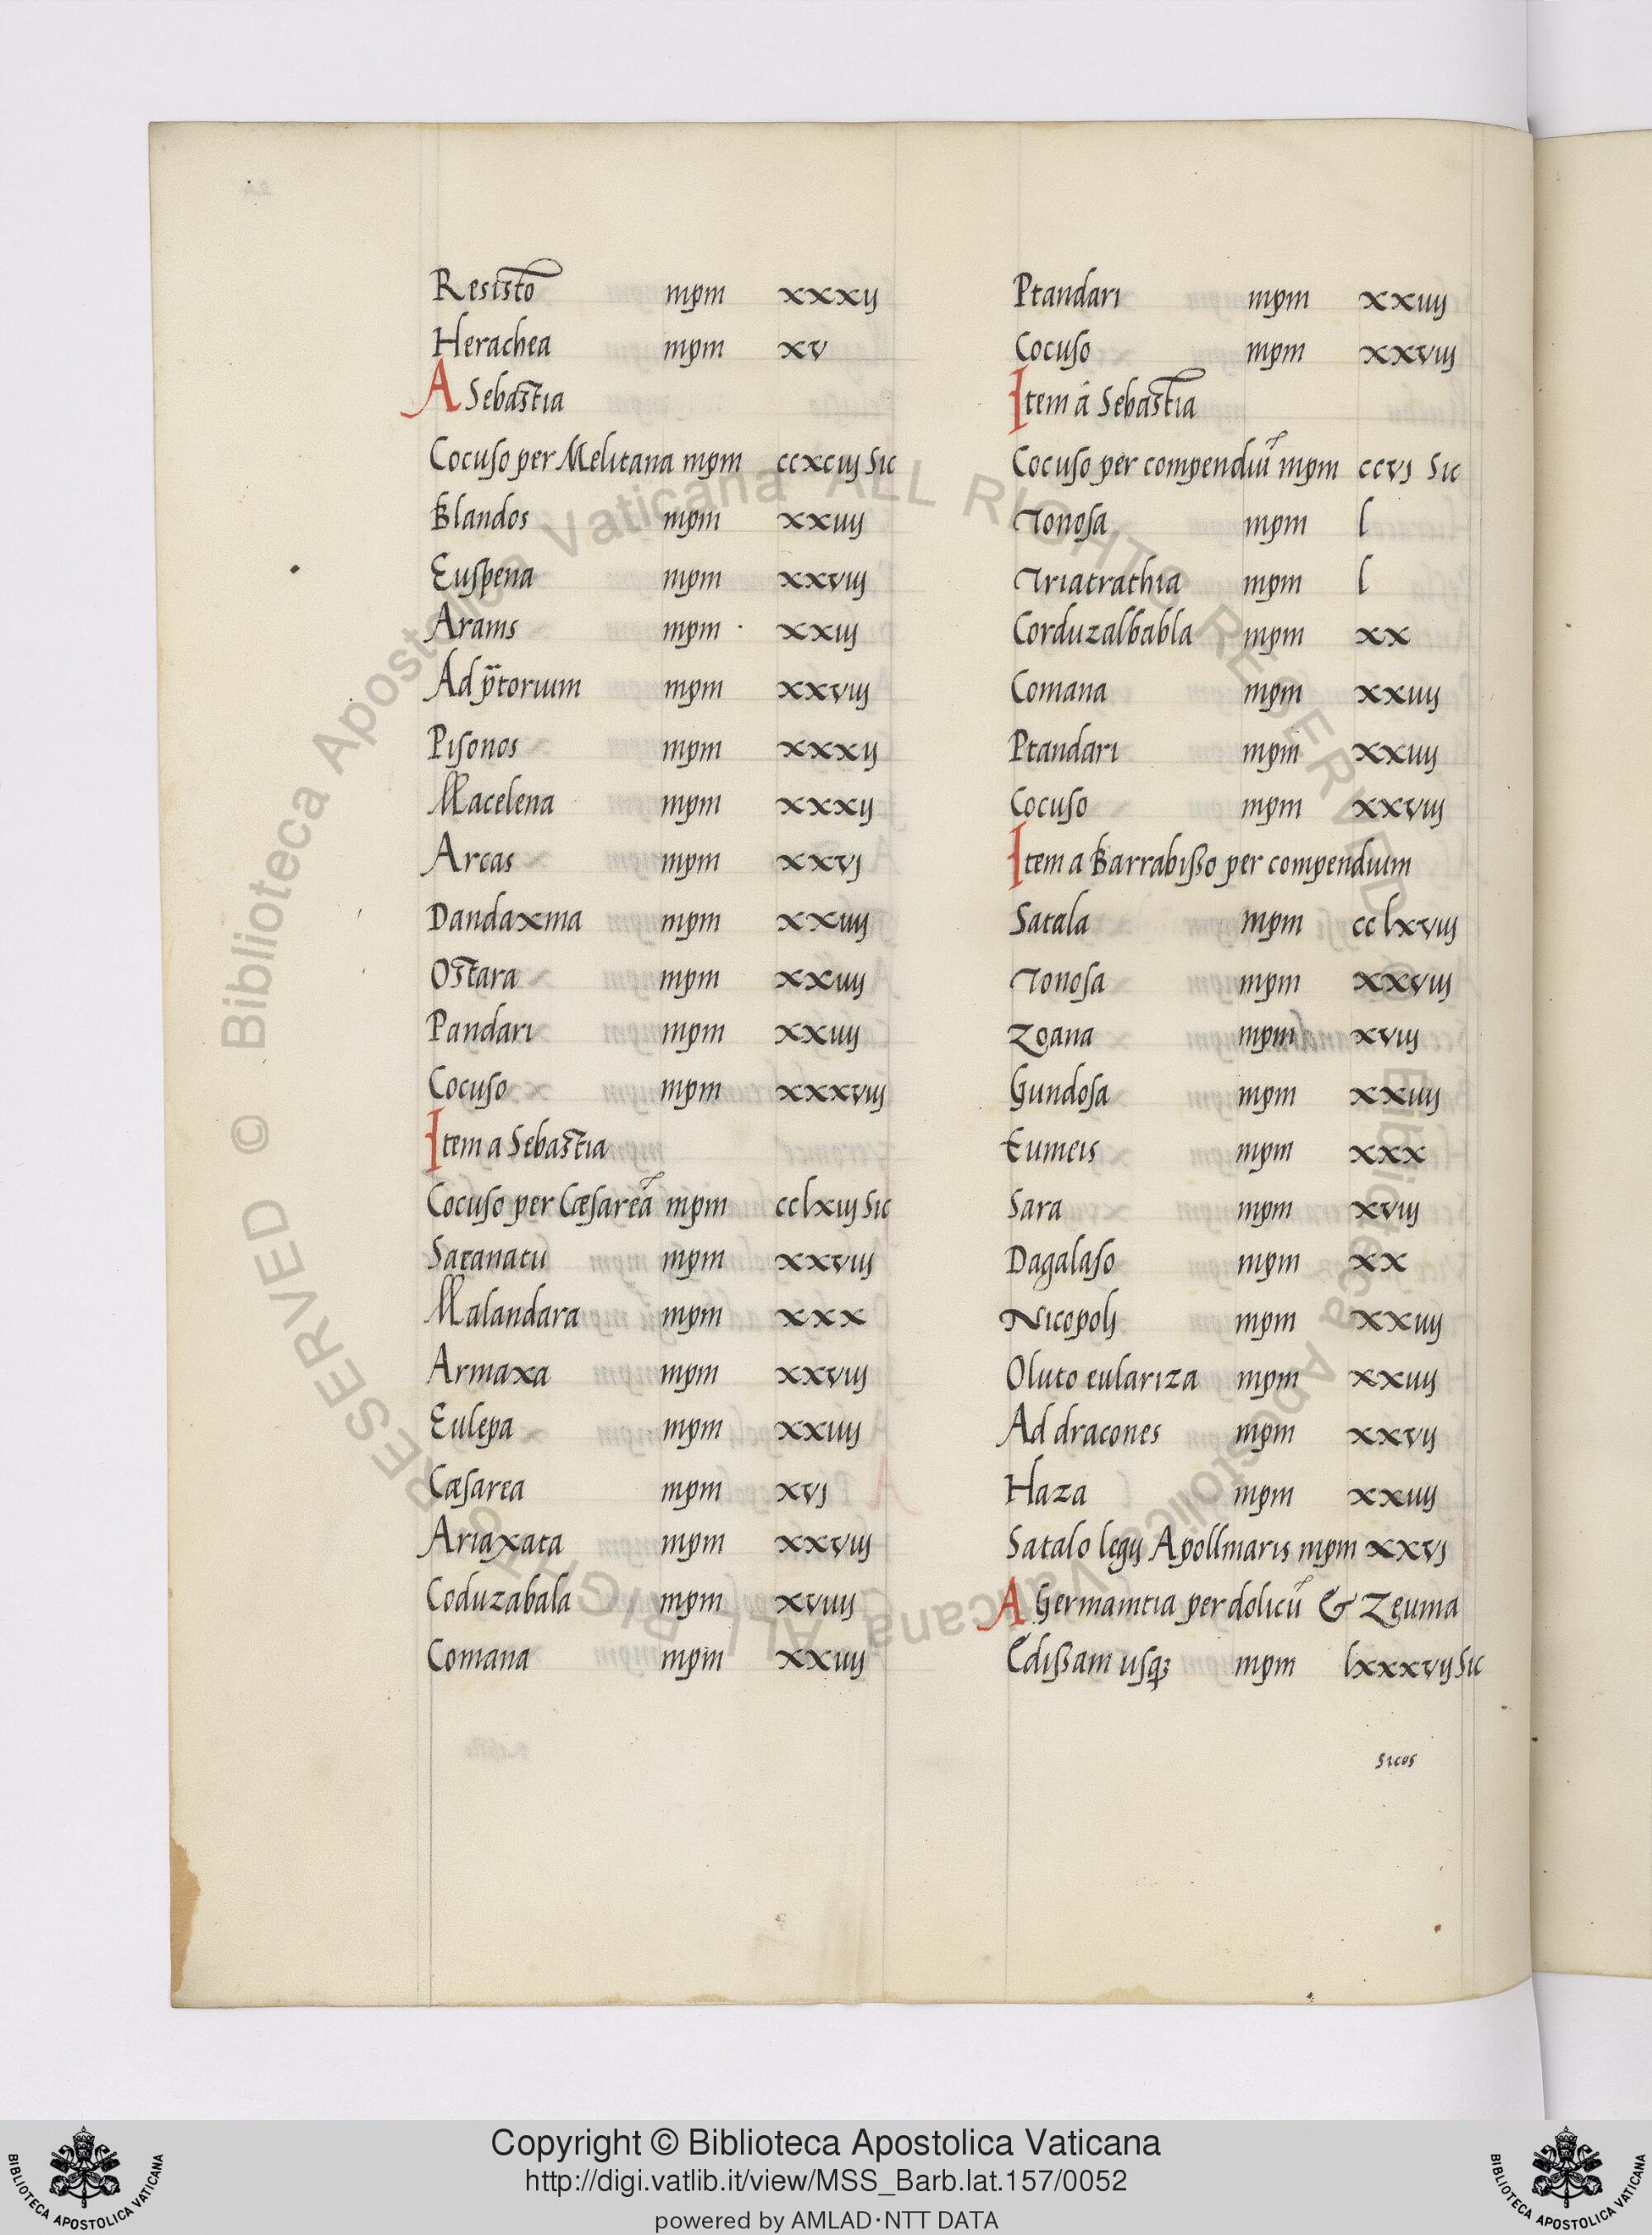 Resisto mpm xxxij
Herachea mpm xv
A Sebastia
Cocuso per Melitana mpm ccxciij Sic
Blandos mpm xxiiij
Euspena mpm xxviij
Arams mpm xxiij
Ad p̄torium mpm xxviij
Pisonos mpm xxxij
Macelena mpm xxxij
Arcas mpm xxvj
Dandaxma mpm xxiiij
Ostara mpm xxiiij
Pandari mpm xxiiij
Cocuso mpm xxxviij
Item a Sebastia
Cocuso per Cæsareā mpm cclxiij Sic
Satanatu mpm xxviij
Malandara mpm xxx
Armaxa mpm xxviij
Eulepa mpm xxiiij
Cæsarea mpm xvj
Ariaxata mpm xxviij
Coduzabala mpm xviiij
Comana mpm xxiiij
Ptandari mpm xxiiij
Cocuso mpm xxviij
Item á Sebastia
Cocuso per compendiū mpm ccvj Sic
Tonosa mpm l
Ariatrathia mpm l
Corduzalbabla mpm xx
Comana mpm xxiiij
Ptandari mpm xxiiij
Cocuso mpm xxviij
Item a Barrabisso per compendium
Satala mpm cclxviij
Tonosa mpm xxviij
Zoana mpm xviij
Gundosa mpm xxiiij
Eumeis mpm xxx
Sara mpm xviij
Dagalaso mpm xx
Nicopolj mpm xxiiij
Oluto eulariza mpm xxiiij
Ad dracones mpm xxvij
Haza mpm xxiiij
Satalo legij Apollmaris mpm xxvj
A Germamtia per dolicū & Zeuma
Edissam usq; mpm lxxxvij Sic
Sicos
© Biblioteca Apostolica Vaticana ALL RIGHTS RESERVED © Biblioteca Apostolica Vaticana ALL RIGHTS RESERVED
Copyright © Biblioteca Apostolica Vaticana
http://digi.vatlib.it/view/MSS_Barb.lat.157/0052
powered by AMLAD·NTT DATA
BIBLIOTECA APOSTOLICA VATICANA
BIBLIOTECA APOSTOLICA VATICANA